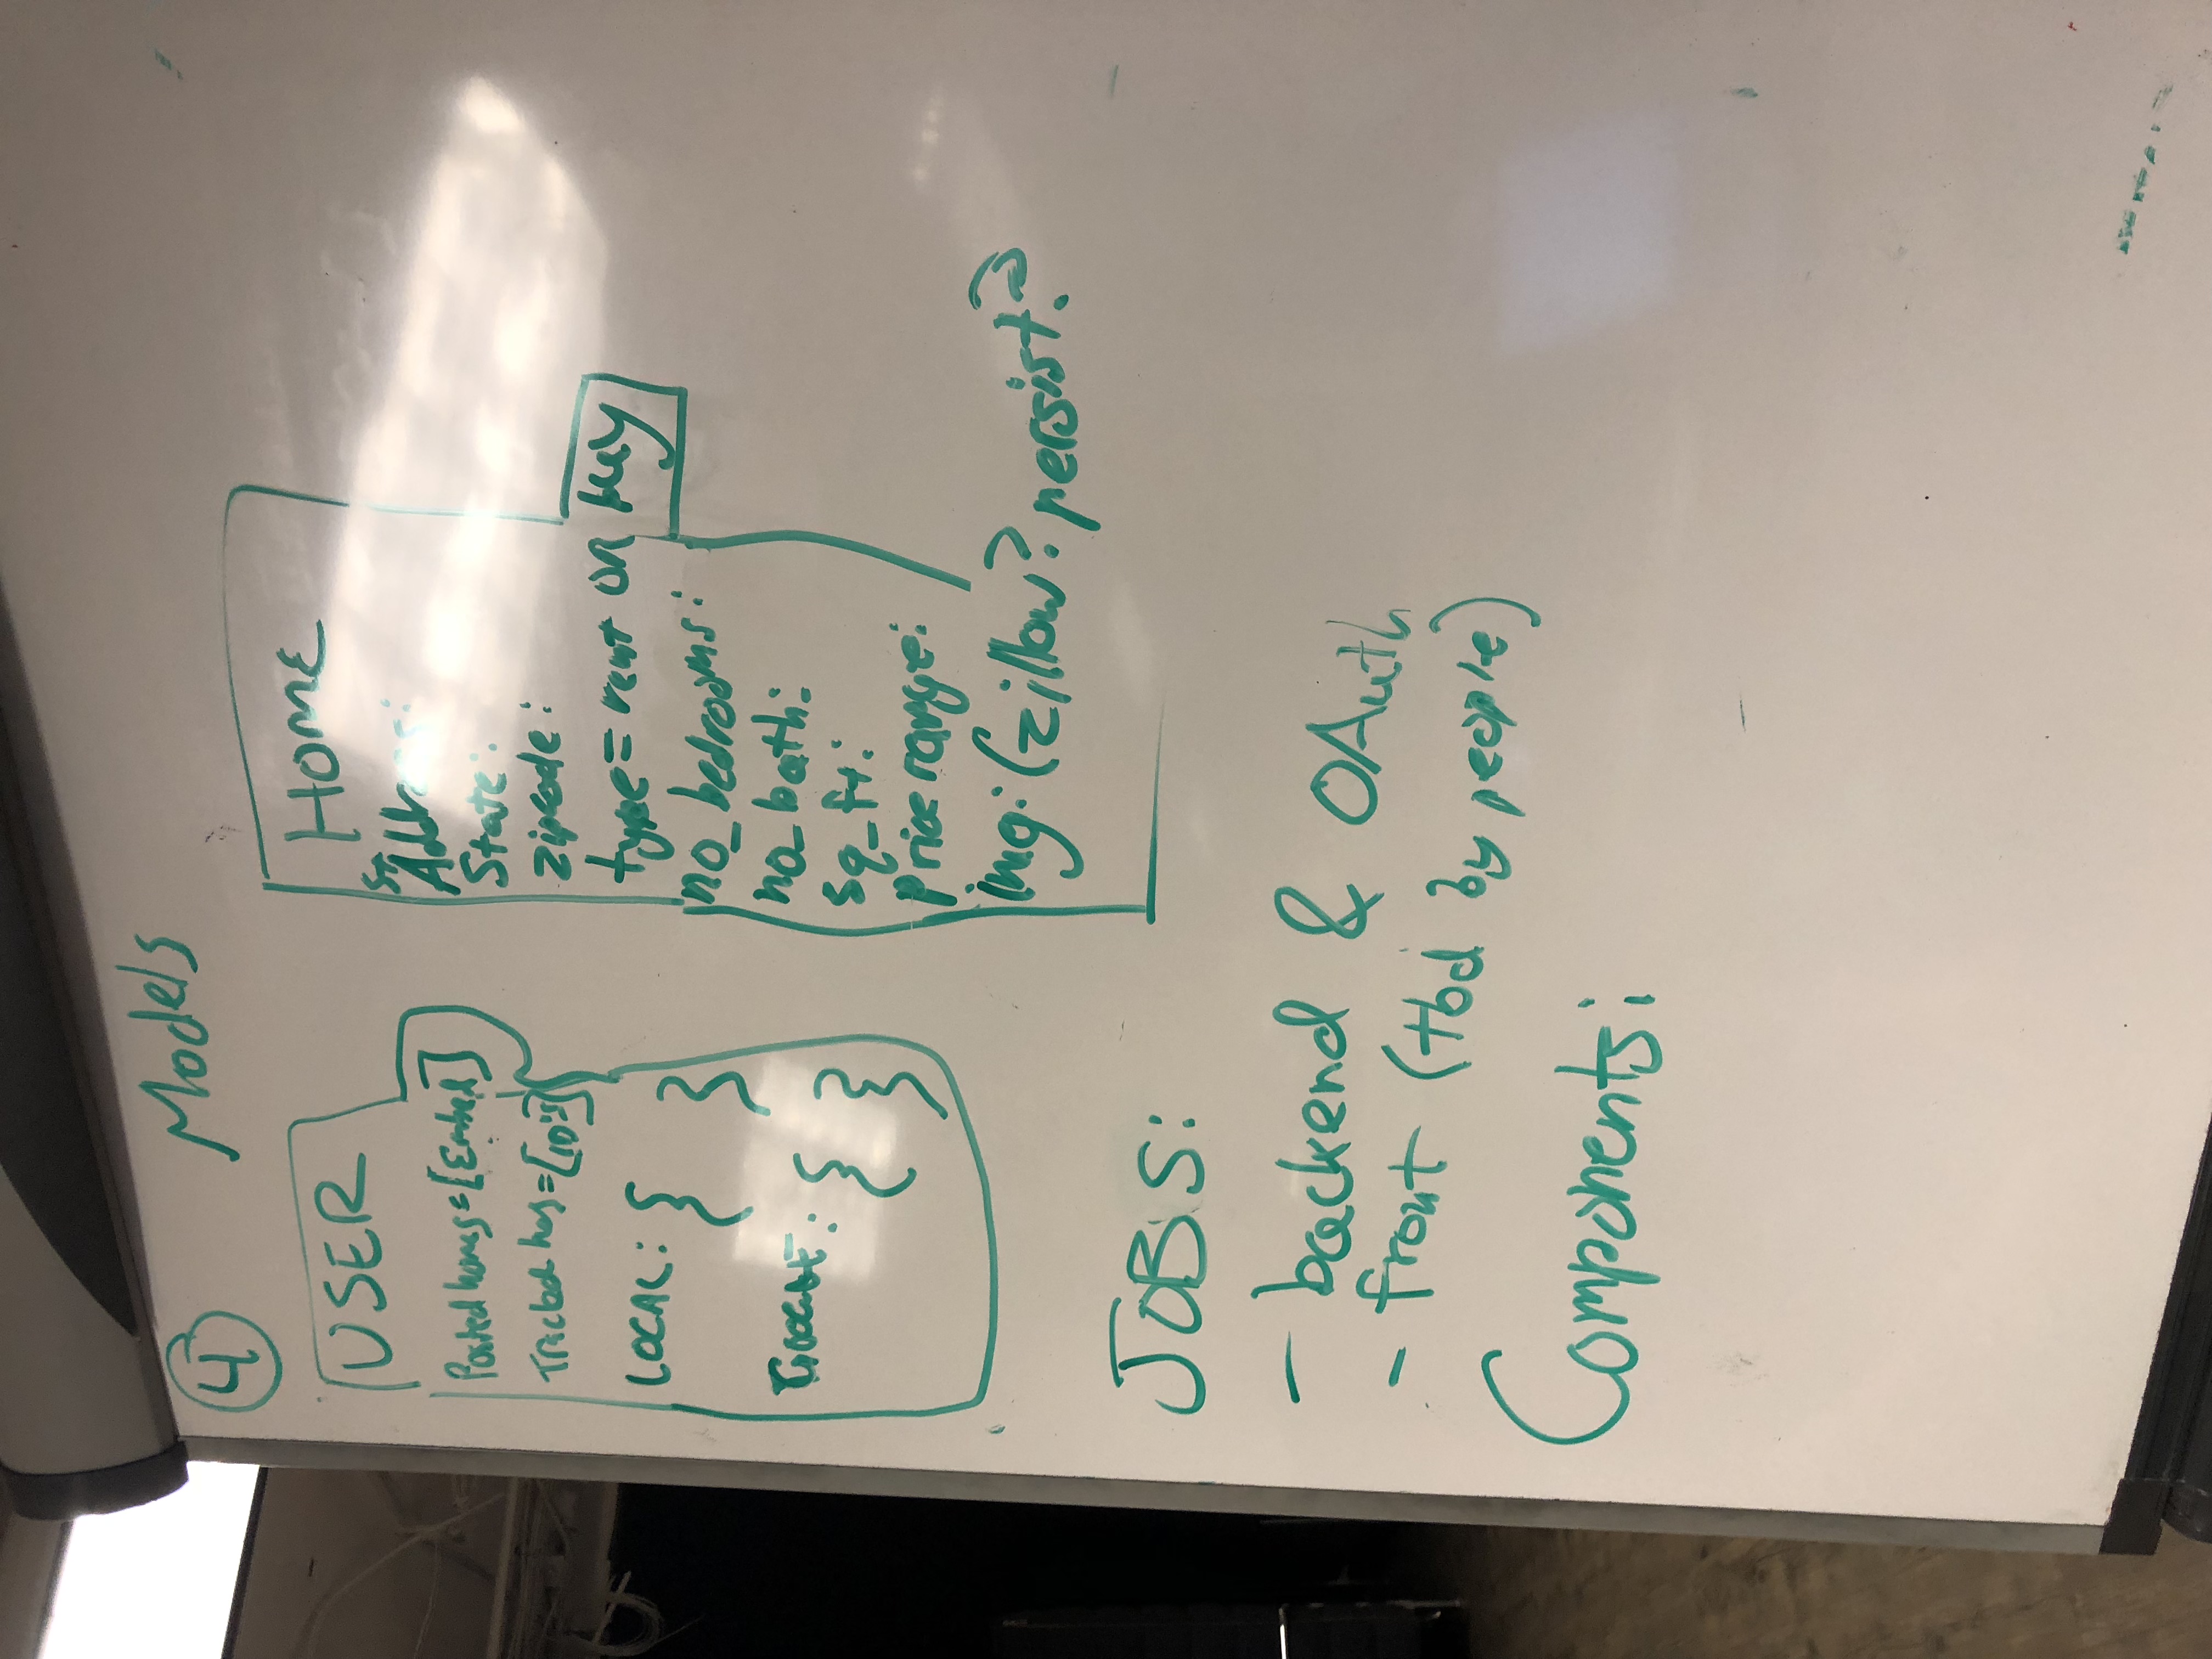 4
Models
USER
Posted homes = [Embed]
Tracked homes = [ID's]
LOCAL: { }
GOOGLE: { }
HOME
St
Address:
State:
zipcode:
type = rent or buy
no_bedrooms:
no_bath:
sq_ft:
price range:
img: (zillow? persist?
JOBS:
- backend & OAuth
- front (tbd by people)
Components: